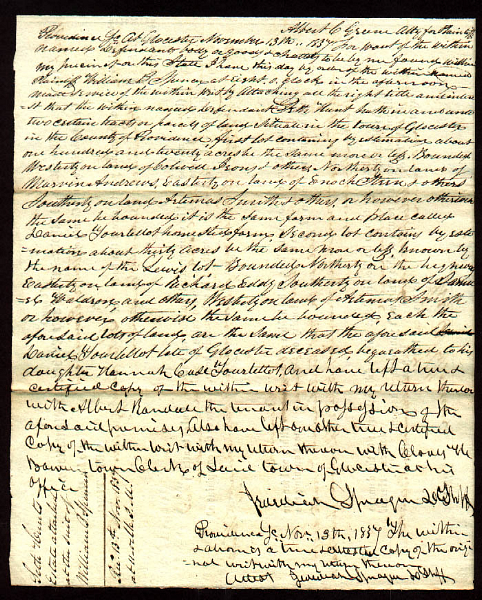 Albert C Greene Atty for Plaintiff
Providence Sc. At Glocester November 13th 1837 For want of the within
named Defendants body or goods & chattels to be by me found within
my precinct or this State I have this day by order of the within named
Plaintiff William Sprague at eight o, clock in the afternoon
made service of the within Writ by Attaching all the right title and interest
that the within named defendant Seth Hunt hath in and unto
two certain tracts or parcels of land situate in the town of Glocester
in the County of Providence, first lot containing by estimation about
one hundred and twenty acres be the same more or less, Bounded
Westerly on land of & others Northerly on land of
Marvin Andrews, Easterly on land of Enoch Steere & others
Southerly on land Artemas Smith & others, or however otherwise
the same be bounded it is the same farm and place called
Daniel Tourtellot homestead farm Second lot contains by esti
mation about thirty acres be the same more or less known by
the name of the Lewis lot - Bounded Northerly on the highway
Easterly on land of Richard Eddy Southerly on land of
Waldron, and others, Westerly on land of Artemas Smith
or however otherwise the same be bounded Each the
aforesaid lots of land are the same that the aforesaid
Daniel Tourtellot late of Glocester deceased bequeathed to his
daughter Hannah Tourtellot, And have left a true
certified copy of the within writ with my return thereon
with Albert Randall the tenant in possession of the
aforesaid premises, Also have left another true certified
Copy of the within writ with my return thereon with
Town Clerk of said town of Glocester at his
Office
Jedediah Sprague D. Shff
Providence Sc. Nov. 13th, 1837 The within
is a true copy of the origi
nal writ with my return thereon
Attest Jedediah Sprague D Shff
Seth Hunts
Estate attached
at the suit of
William Sprague
Nov. 13th